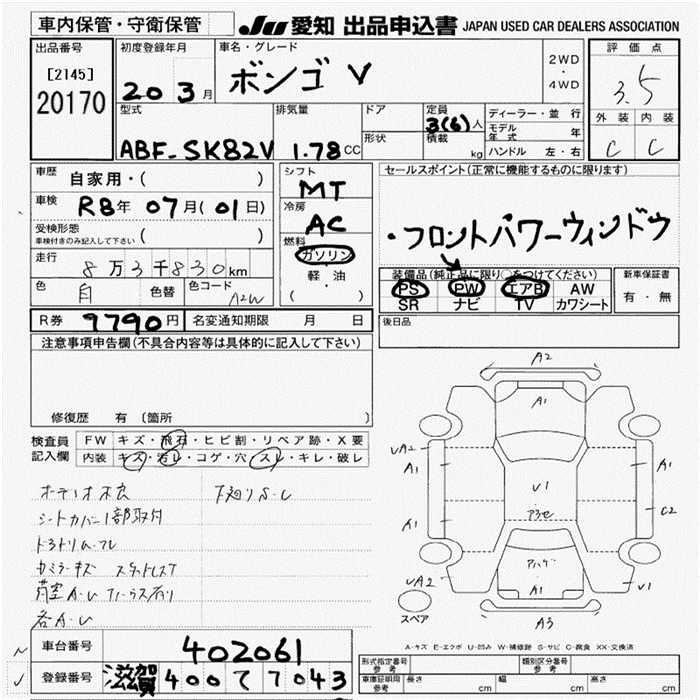 車内保管・守衛保管
JU 愛知 出品申込書 JAPAN USED CAR DEALERS ASSOCIATION
出品番号
[2145]
20170
初度登録年月
20 3月
車名・グレード
ボンゴ V
2WD
・
4WD
評価点
3.5
外装 内装
C C
型式
ABF-SK82V
排気量
1.78 CC
ドア
形状
定員
3(6)人
積載
kg
ディーラー・並行
モデル年式 年
ハンドル 左・右
車歴
自家用・( )
車検
R8年 07月(01日)
受検形態
車検付きのみ記入して下さい ( )
走行
8万3千830km
色
白
色替
色コード
A2W
シフト
MT
冷房
AC
燃料
ガソリン
軽・油
( )
セールスポイント(正常に機能するものに限ります)
・フロントパワーウィンドウ
装備品(純正品に限り○をつけてください)
PS PW エアB AW
SR ナビ TV カワシート
新車保証書
有・無
R券 9790円
名変通知期限 月 日
後日品
注意事項申告欄(不具合内容等は具体的に記入して下さい)
修復歴 有〔箇所
検査員
記入欄
FW キズ・飛石・ヒビ割・リペア跡・X要
内装 キズ・汚レ・コゲ・穴・スレ・キレ・破レ
オーディオ不良
下廻りS・C
シートカバー1部取付
カミラーキズ
荷室A・U
各A・U
A2
A1
UA2
A1
A1
UA2
U1
アらセ
A1
A3
A1
C2
U1
スペア
A-キズ E-エクボ U-凹み W-補修跡 S-サビ C-腐食 XX-交換済
車台番号
402061
登録番号
滋賀 400 て 7043
形式指定番号
参考
類別区分番号
参考
車庫証明用
参考
長さ cm
幅 cm
高さ cm